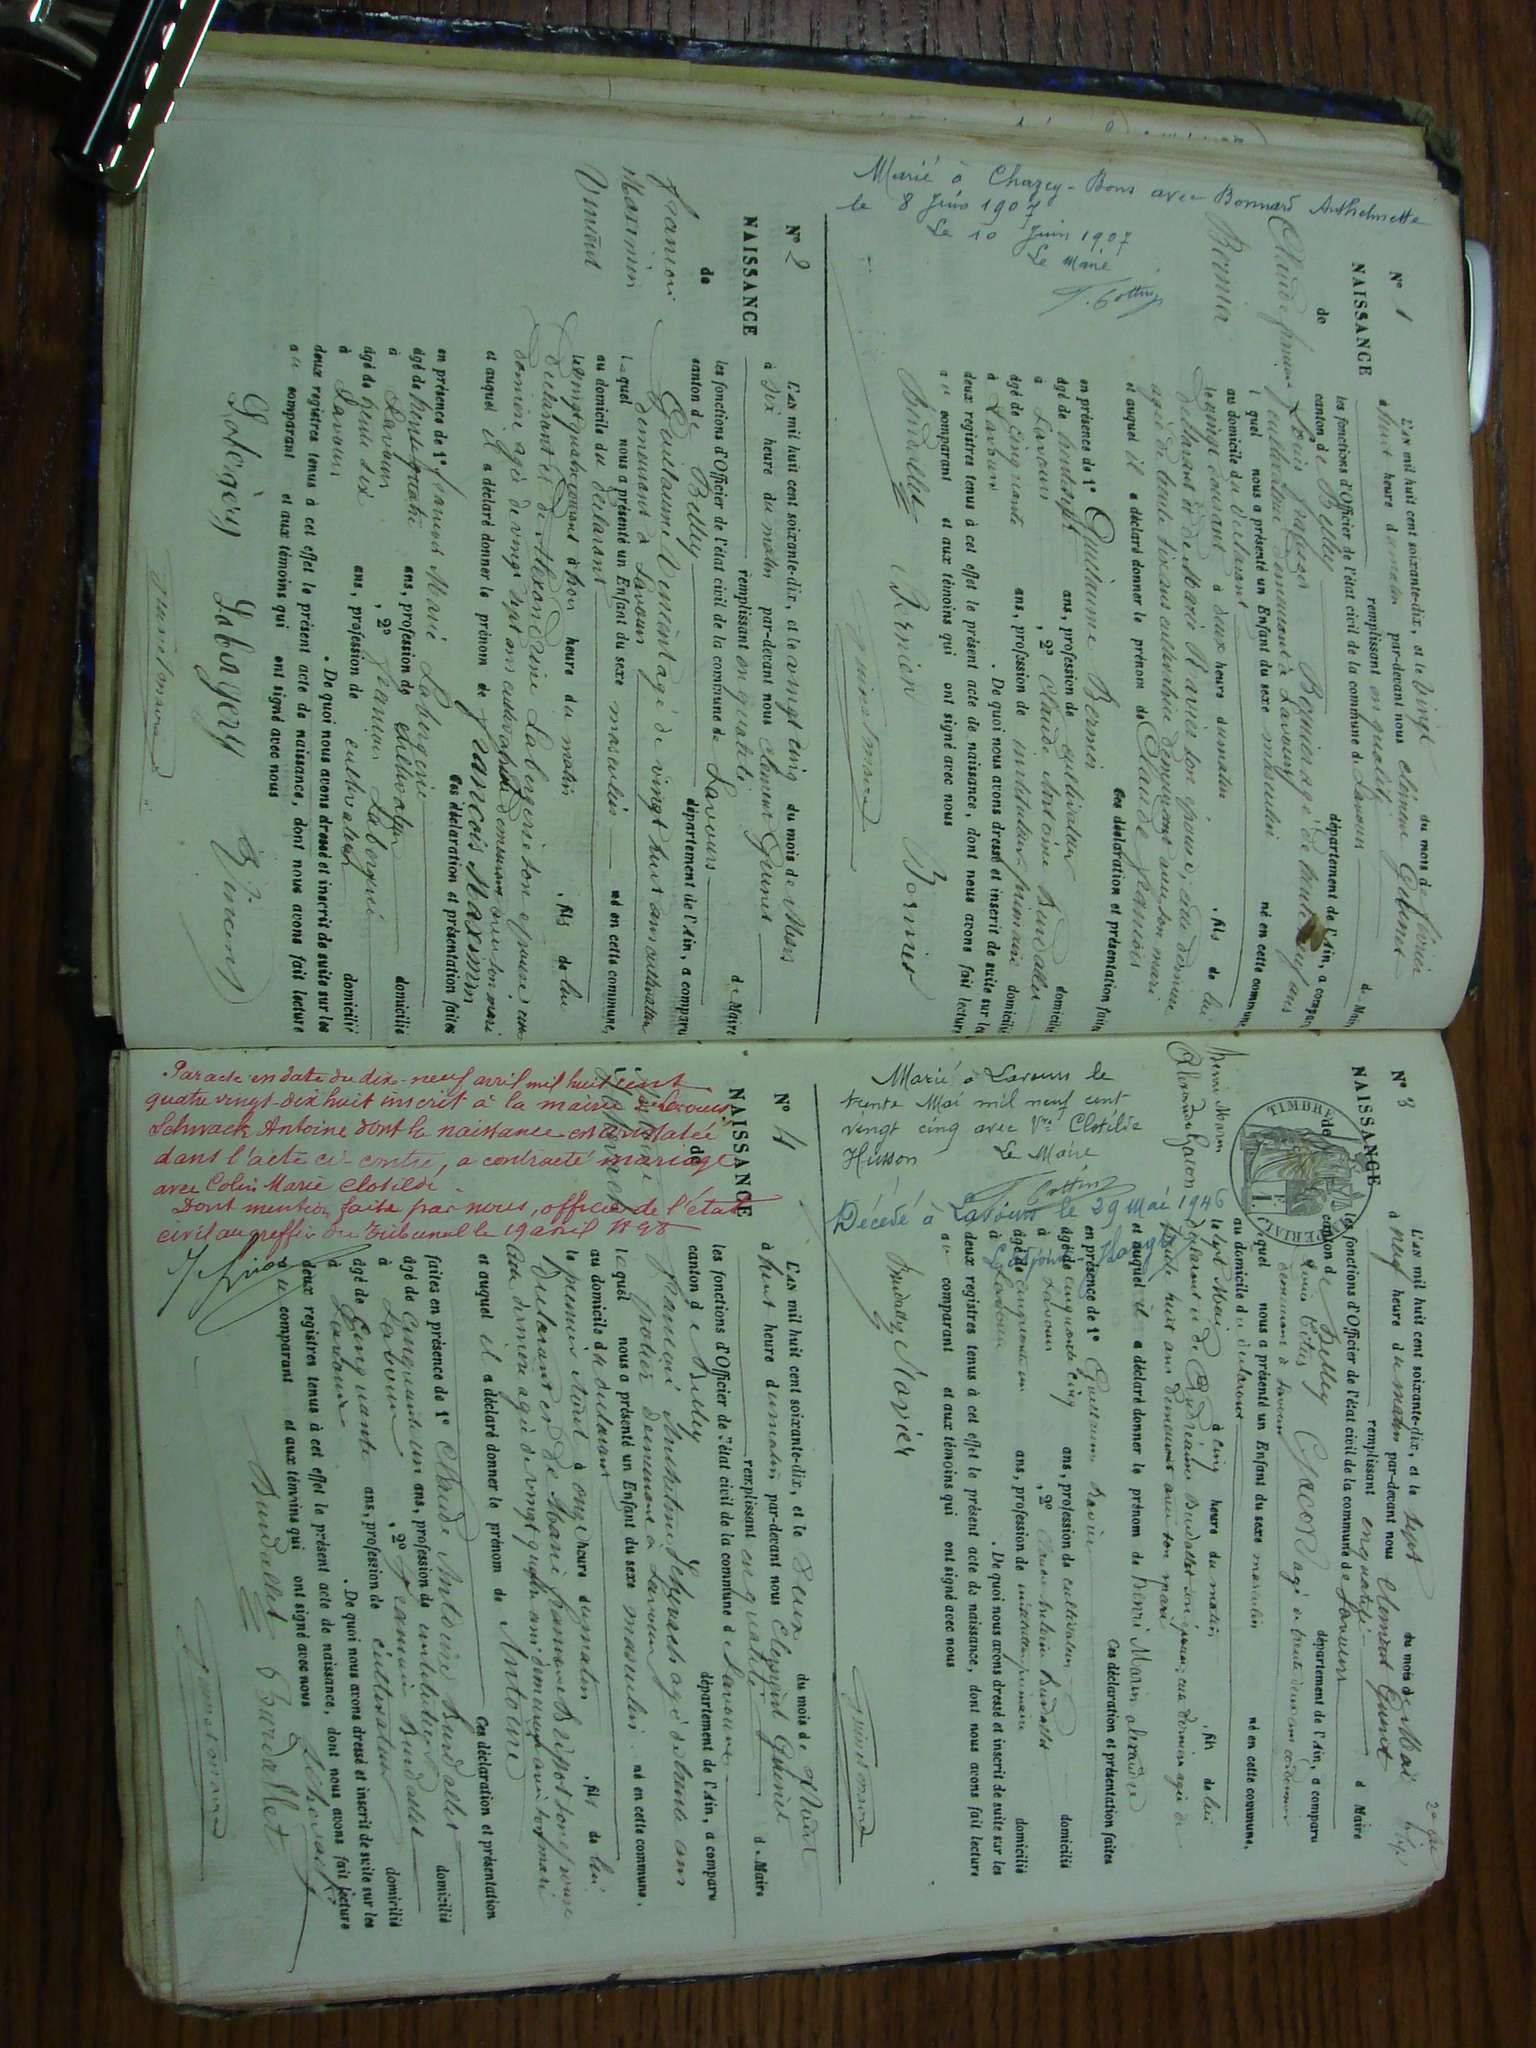 Nº 1
NAISSANCE
de
Claude françois
Bernier
Marié à Chazey-Bons avec Bonnard Anthelmette
le 8 Juin 1907
Le 10 Juin 1907
Le Maire
L'an mil huit cent soixante-dix, et le vingt du mois de février
à huit heure du matin par-devant nous clément Guinet de Maire
remplissant en qualité
les fonctions d'Officier de l'état civil de la commune de Lavours
canton de Belley département de l'Ain, a comparu
Louis françois Bernier agé de trente neuf ans
cultivateur demeurant à Lavours
lequel nous a présenté un Enfant du sexe masculin né en cette commune
au domicile du déclarant
le vingt courant à deux heure du matin , fils de lui
déclarant et de Marie Ravier son épouse, cette dernière
agée de trente six ans cultivatrice demeurant avec son mari
et auquel il a déclaré donner le prénom de Claude françois
Ces déclaration et présentation faites
en présence de 1º Guillaume Bernier
âgé de trente sept ans, profession de cultivateur domicilié
à Lavours , 2º Claude Antoine Burdallet
âgé de cinquante ans, profession de instituteur primaire domicilié
à Lavours . De quoi nous avons dressé et inscrit de suite sur les
deux registres tenus à cet effet le présent acte de naissance, dont nous avons fait lecture
au comparant et aux témoins qui ont signé avec nous
Burdallet Bernier Bernier
Guinet maire
Nº 2
NAISSANCE
de
francois
Maximin
Vincent
L'an mil huit cent soixante-dix, et le vingt cinq du mois de Mars
à six heure du matin par-devant nous clement Guinet de Maire
remplissant en qualité
les fonctions d'Officier de l'état civil de la commune de Lavours
canton de Belley département de l'Ain, a comparu
Guillaume Vincent agé de vingt huit ans cultivateur
demeurant à Lavours
lequel nous a présenté un Enfant du sexe masculin né en cette commune,
au domicile du déclarant
le vingt quatre courant à trois heure du matin , fils de lui
déclarant et de Alexandrine Labergerie son epouse cette
dernière agée de vingt sept ans cultivatrice demeurant avec son mari
et auquel il a déclaré donner le prénom de francois Maximin
Ces déclaration et présentation faites
en présence de 1º francois Marie Labergerie
âgé de trente quatre ans, profession de cultivateur domicilié
à Lavours , 2º
âgé de trente six ans, profession de cultivateur domicilié
à Lavours . De quoi nous avons dressé et inscrit de suite sur les
deux registres tenus à cet effet le présent acte de naissance, dont nous avons fait lecture
au comparant et aux témoins qui ont signé avec nous
Vincent
Guinet maire
Nº 3
NAISSANCE
de
Henri Marin
TIMBRE IMPÉRIAL
1 F.
Marié à Lavours le
trente Mai mil neuf cent
vingt cinq avec Vve Clotilde
Husson Le Maire
Décédé à Lavours le 29 Mai 1946
L'an mil huit cent soixante-dix, et le sept du mois de Mai
à neuf heure du matin par-devant nous Clement Guinet Maire
remplissant en qualité
les fonctions d'Officier de l'état civil de la commune de Lavours
canton de Belley département de l'Ain, a comparu
agé de trente deux ans
demeurant à Lavours
lequel nous a présenté un Enfant du sexe masculin né en cette commune,
au domicile du déclarant
le sept Mai à cinq heure du matin , fils de lui
déclarant et de Burdallet son épouse, cette dernière agée de
trente huit ans demeurant avec son mari
et auquel il a déclaré donner le prénom de Henri Marin alexandre
Ces déclaration et présentation faites
en présence de 1º Guillaume Ravier
âgé de cinquante cinq ans, profession de cultivateur domicilié
à Lavours , 2º Burdallet
âgé de cinquante un ans, profession de instituteur primaire domicilié
à Lavours . De quoi nous avons dressé et inscrit de suite sur les
deux registres tenus à cet effet le présent acte de naissance, dont nous avons fait lecture
au comparant et aux témoins qui ont signé avec nous
Burdallet Ravier
Guinet maire
Nº 4
NAISSANCE
de
Antoine
Schwach
Par acte en date du dix-neuf avril mil huit cent
quatre vingt-dix huit inscrit à la mairie de Lavours,
Schwach Antoine dont la naissance est constatée
dans l'acte ci-contre, a contracté mariage
avec Colin Marie Clotilde.
Dont mention faite par nous, officier de l'état
civil au greffier du Tribunal le 19 avril 1898
L'an mil huit cent soixante-dix, et le deux du mois de Août
à huit heure du matin, par-devant nous Clement Guinet de Maire
remplissant en qualité
les fonctions d'Officier de l'état civil de la commune de Lavours
canton de Belley département de l'Ain, a comparu
francois Antoine Schwach agé de trente ans
demeurant à Lavours
lequel nous a présenté un Enfant du sexe masculin né en cette commune,
au domicile du déclarant
le premier Août à onze heure du matin , fils de lui
Déclarant et de Marie son epouse
cette dernière agée de vingt quatre ans demeurant avec son mari
et auquel il a déclaré donner le prénom de Antoine
Ces déclaration et présentation
faites en présence de 1º Claude Antoine Burdallet
âgé de cinquante un ans, profession de instituteur domicilié
à Lavours , 2º Burdallet
âgé de Cinquante ans, profession de cultivateur domicilié
à Lavours . De quoi nous avons dressé et inscrit de suite sur les
deux registres tenus à cet effet le présent acte de naissance, dont nous avons fait lecture
au comparant et aux témoins qui ont signé avec nous Schwach
Burdallet Burdallet
Guinet maire